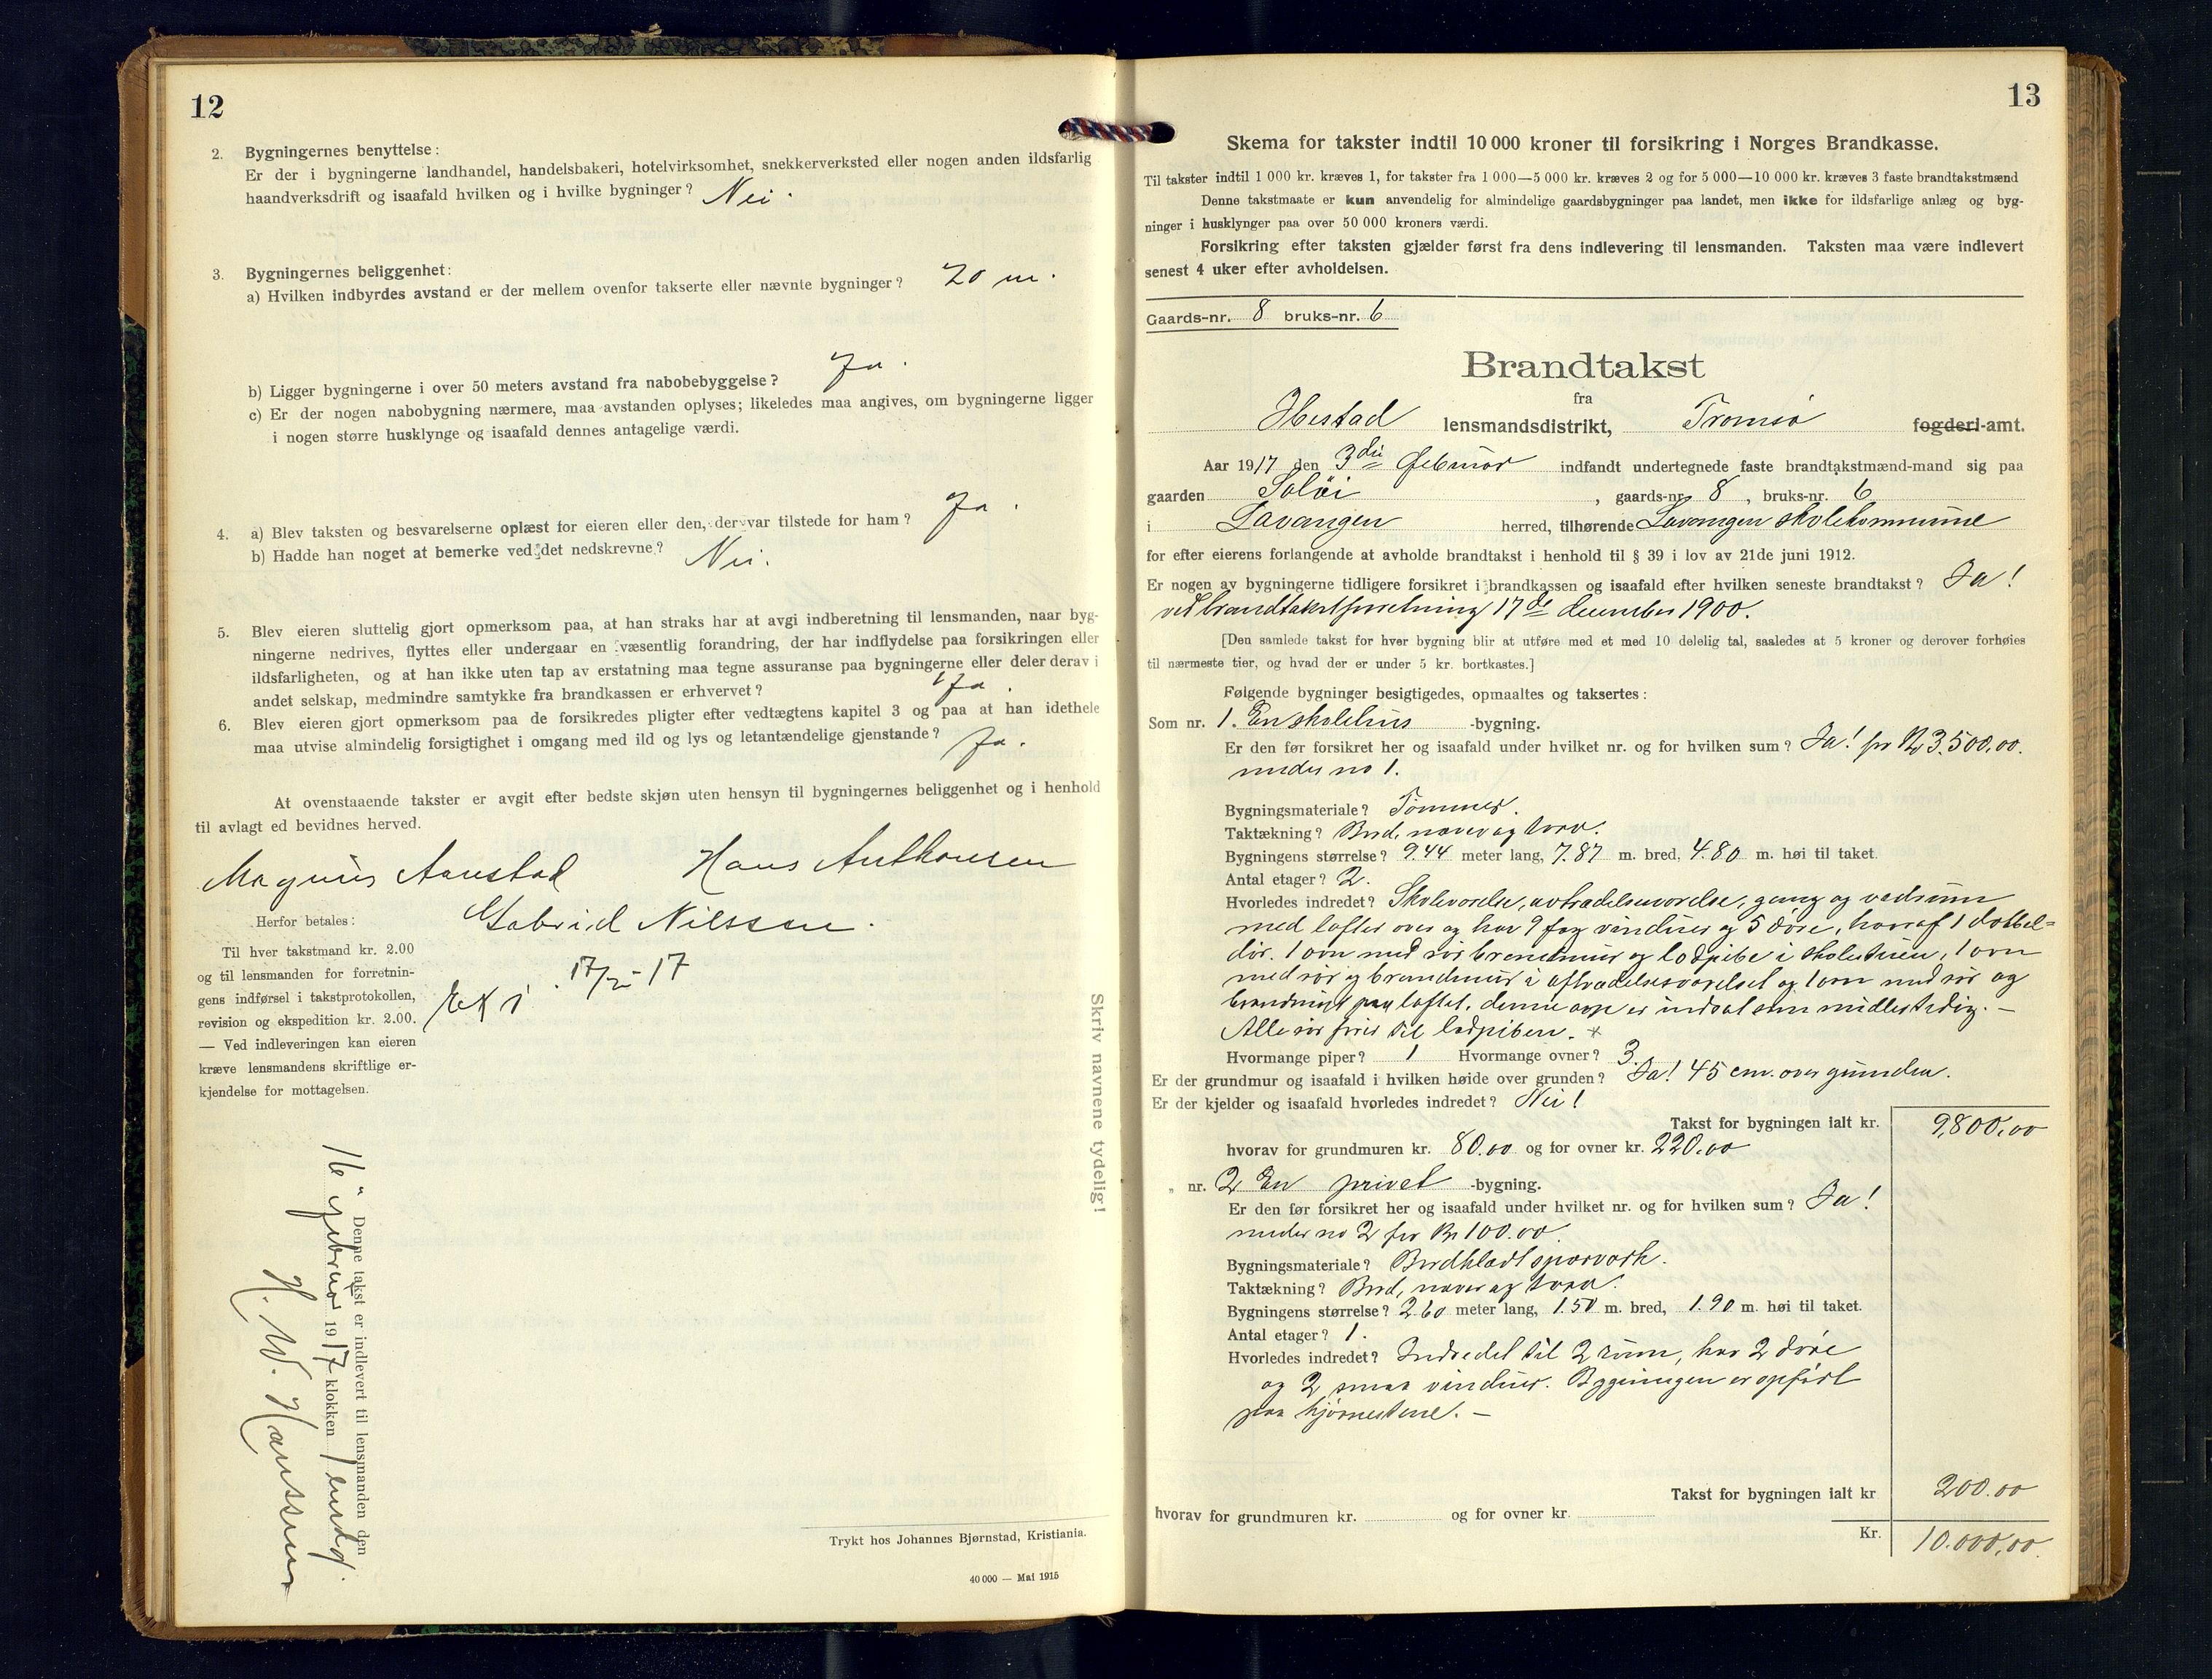 12
2. Bygningernes benyttelse:
Er der i bygningerne landhandel, handelsbakeri, hotelvirksomhet, snekkerverksted eller nogen anden ildsfarlig
haandverksdrift og isaafald hvilken og i hvilke bygninger? Nei.
3. Bygningernes beliggenhet:
a) Hvilken indbyrdes avstand er der mellem ovenfor takserte eller nævnte bygninger? 20 m.
b) Ligger bygningerne i over 50 meters avstand fra nabobebyggelse? Ja.
c) Er der nogen nabobygning nærmere, maa avstanden oplyses; likeledes maa angives, om bygningerne ligger
i nogen større husklynge og isaafald dennes antagelige værdi.
4. a) Blev taksten og besvarelserne oplæst for eieren eller den, der var tilstede for ham? Ja.
b) Hadde han noget at bemerke ved det nedskrevne? Nei.
5. Blev eieren sluttelig gjort opmerksom paa, at han straks har at avgi indberetning til lensmanden, naar byg-
ningerne nedrives, flyttes eller undergaar en væsentlig forandring, der har indflydelse paa forsikringen eller
ildsfarligheten, og at han ikke uten tap av erstatning maa tegne assuranse paa bygningerne eller deler derav i
andet selskap, medmindre samtykke fra brandkassen er erhvervet? Ja.
6. Blev eieren gjort opmerksom paa de forsikredes pligter efter vedtægtens kapitel 3 og paa at han idethele
maa utvise almindelig forsigtighet i omgang med ild og lys og letantændelige gjenstande? Ja.
At ovenstaaende takster er avgit efter bedste skjøn uten hensyn til bygningernes beliggenhet og i henhold
til avlagt ed bevidnes herved.
Magnus Aanstad Hans Anthonsen
Gabriel Nilssen.
Herfor betales:
Til hver takstmand kr. 2.00
og til lensmanden for forretnin-
gens indførsel i takstprotokollen,
revision og ekspedition kr. 2.00.
— Ved indleveringen kan eieren
kræve lensmandens skriftlige er-
kjendelse for mottagelsen.
17/2-17
Denne takst er indlevert til lensmanden den
16 februar 1917 klokken 1 emd.
H. W. Hanssen
Skriv navnene tydelig!
Trykt hos Johannes Bjørnstad, Kristiania.
40 000 — Mai 1915
13
Skema for takster indtil 10 000 kroner til forsikring i Norges Brandkasse.
Til takster indtil 1 000 kr. kræves 1, for takster fra 1 000—5 000 kr. kræves 2 og for 5 000—10 000 kr. kræves 3 faste brandtakstmænd
Denne takstmaate er kun anvendelig for almindelige gaardsbygninger paa landet, men ikke for ildsfarlige anlæg og byg-
ninger i husklynger paa over 50 000 kroners værdi.
Forsikring efter taksten gjælder først fra dens indlevering til lensmanden. Taksten maa være indlevert
senest 4 uker efter avholdelsen.
Gaards-nr. 8 bruks-nr. 6
Brandtakst
fra
Ibestad lensmandsdistrikt, Tromsø fogderi-amt.
Aar 1917 den 3die februar indfandt undertegnede faste brandtakstmænd-mand sig paa
gaarden Soløi, gaards-nr. 8, bruks-nr. 6
i Lavangen herred, tilhørende Lavangen skolekommune
for efter eierens forlangende at avholde brandtakst i henhold til § 39 i lov av 21de juni 1912.
Er nogen av bygningerne tidligere forsikret i brandkassen og isaafald efter hvilken seneste brandtakst? Ja!
ved brandtakstforretning 17de december 1900.
[Den samlede takst for hver bygning blir at utføre med et med 10 delelig tal, saaledes at 5 kroner og derover forhøies
til nærmeste tier, og hvad der er under 5 kr. bortkastes.]
Følgende bygninger besigtigedes, opmaaltes og taksertes:
Som nr. 1. En skolehus -bygning.
Er den før forsikret her og isaafald under hvilket nr. og for hvilken sum? Ja! for Kr 3.500,00.
under no 1.
Bygningsmateriale? Tømmer.
Taktækning? Bord, never og torv.
Bygningens størrelse? 9.44 meter lang, 7.87 m. bred, 4.80 m. høi til taket.
Antal etager? 2.
Hvorledes indredet? Skoleværelse, avtrædelsesværelse, gang og vedrum
med lofter over og har 9 fag vinduer og 5 døre, hvoraf 1 dobbel=
dør. 1 ovn med rør brandmur og lodpibe i skolestuen, 1 ovn
med rør og brandmur i aftrædelsesværelset og 1 ovn med rør og
brandmur paa loftet, denne ovn er indsat som midlertidig. —
Alle rør fører til lodpiben. ×
Hvormange piper? 1 Hvormange ovner? 3.
Er der grundmur og isaafald i hvilken høide over grunden? Ja! 45 cm. over grunden.
Er der kjelder og isaafald hvorledes indredet? Nei!
Takst for bygningen ialt kr. 9,800,00
hvorav for grundmuren kr. 80.00 og for ovner kr. 220.00
„ nr. 2 En privet -bygning.
Er den før forsikret her og isaafald under hvilket nr. og for hvilken sum? Ja!
under no 2 for Kr 100.00.
Bygningsmateriale? Bordklædt sparværk.
Taktækning? Bord, never og torv.
Bygningens størrelse? 2.60 meter lang, 1.50 m. bred, 1.90 m. høi til taket.
Antal etager? 1.
Hvorledes indredet? Indredet til 2 rum, har 2 døre
og 2 smaa vinduer. Bygningen er opført
paa hjørnestene. —
Takst for bygningen ialt kr 200.00
hvorav for grundmuren kr. og for ovner kr.
Kr. 10.000,00.